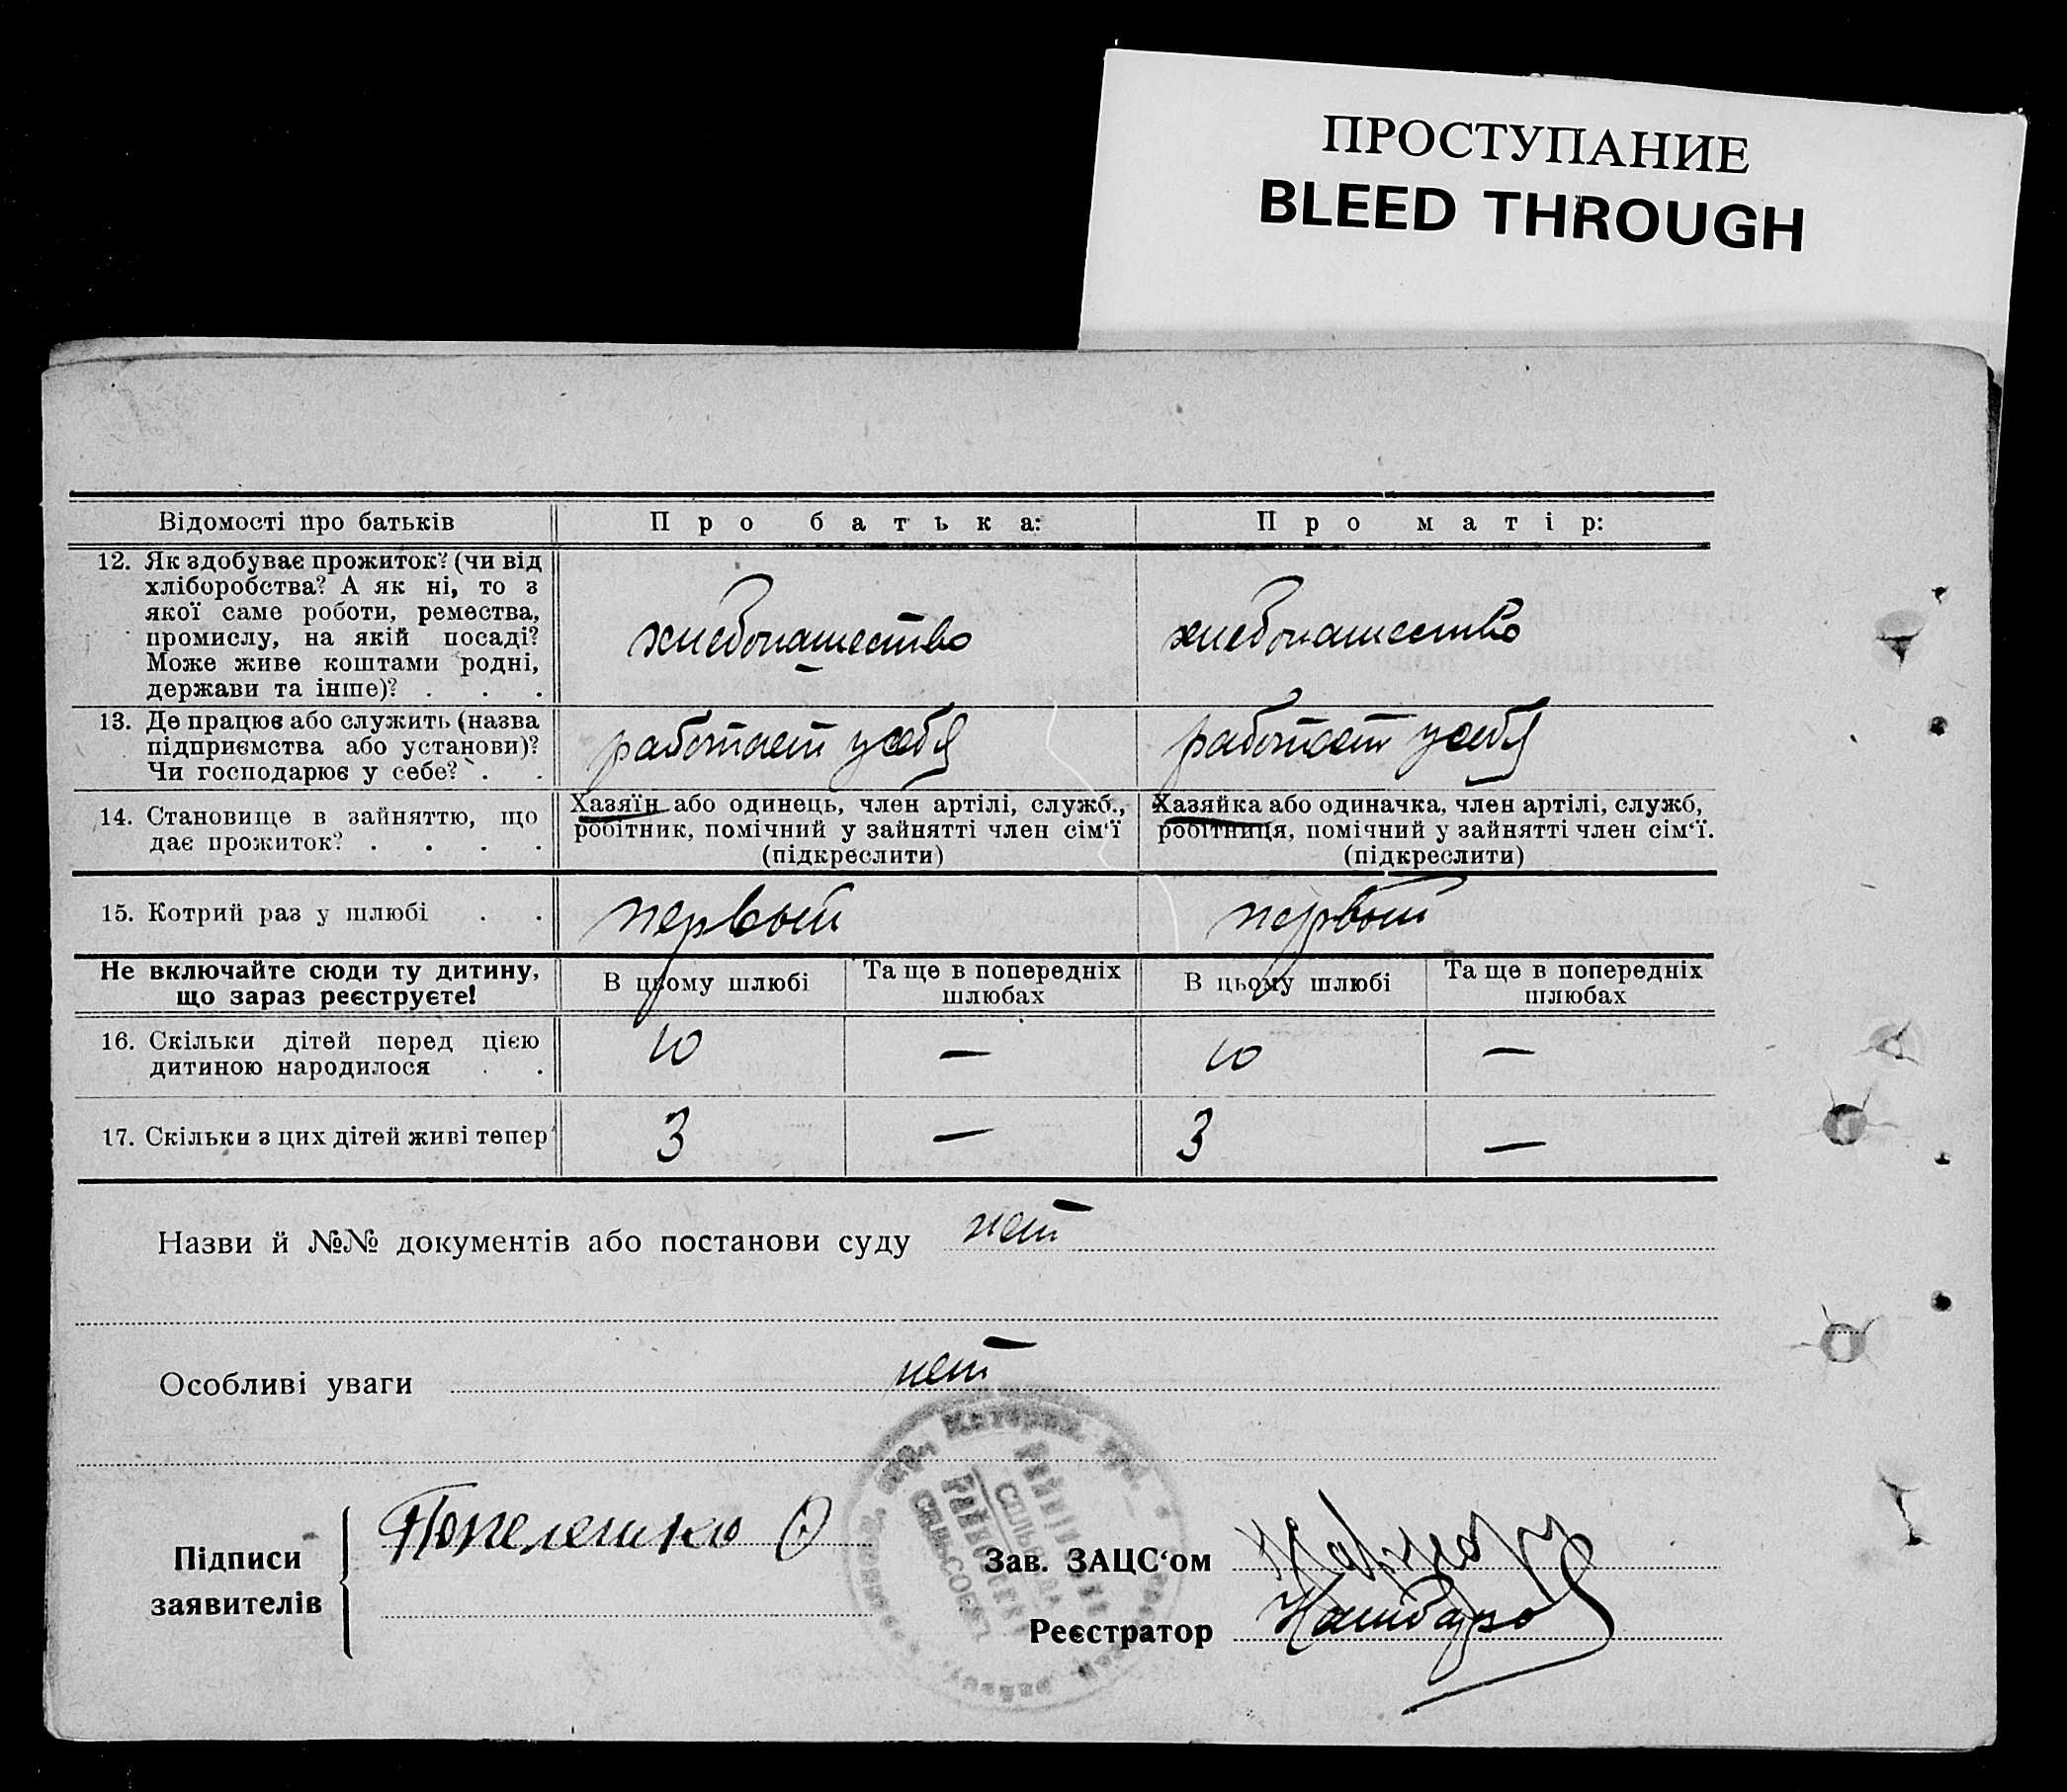 ПРОСТУПАНИЕ
BLEED THROUGH
Відомості про батьків
Про батька:
Про матір:
12. Як здобуває прожиток? (чи від
хліборобства? А як ні, то з
якої саме роботи, ремества,
промислу, на якій посаді?
Може живе коштами родні,
держави та інше)? . . .
хлебопашество
хлебопашество
13. Де працює або служить (назва
підприємства або установи)?
Чи господарює у себе? . .
работает у себя
работает у себя
14. Становище в зайняттю, що
дає прожиток? . . . .
Хазяїн або одинець, член артілі, служб.,
робітник, помічний у зайнятті член сім'ї
(підкреслити)
Хазяйка або одиначка, член артілі, служб,
робітниця, помічний у зайнятті член сім'ї.
(підкреслити)
15. Котрий раз у шлюбі . .
первый
первый
Не включайте сюди ту дитину,
що зараз реєструєте!
В цьому шлюбі
Та ще в попередніх
шлюбах
В цьому шлюбі
Та ще в попередніх
шлюбах
16. Скільки дітей перед цією
дитиною народилося . .
10
—
10
—
17. Скільки з цих дітей живі тепер
3
—
3
—
Назви й №№ документів або постанови суду нет
Особливі уваги нет
Підписи
заявителів
Попелешко О
Зав. ЗАЦС'ом
Реєстратор